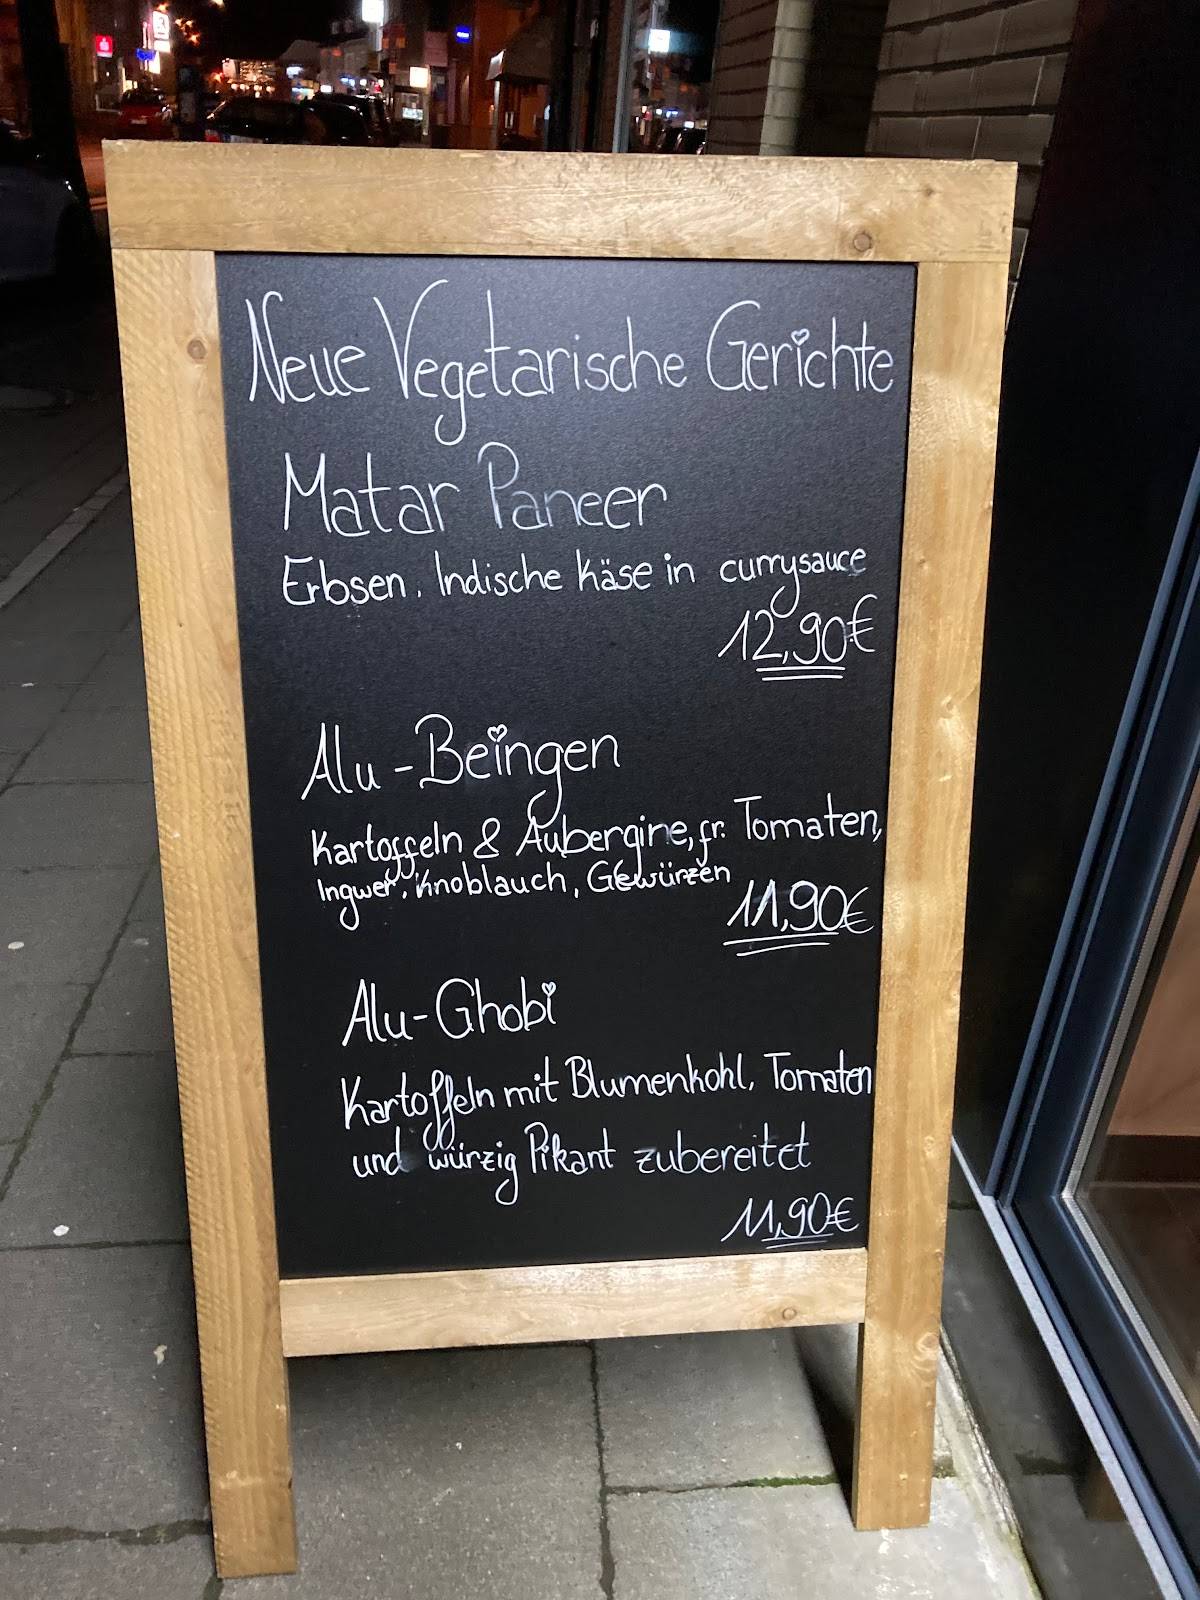 Neue Vegetarische Gerichte
Matar Paneer
Erbsen, Indische Käse in currysauce
12,90€
Alu-Beingen
Kartoffeln & Aubergine, fr. Tomaten,
Ingwer, Knoblauch, Gewürzen
11,90€
Alu-Ghobi
Kartoffeln mit Blumenkohl, Tomaten
und würzig Pikant zubereitet
11,90€